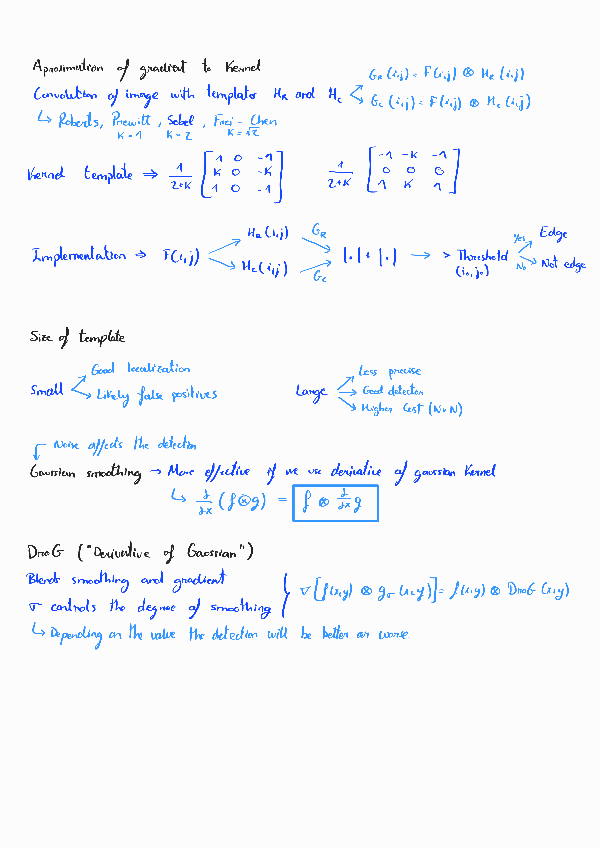 Aproximation of gradient to Kernel
Convolution of image with templates H_R and H_C
G_R(i,j) = F(i,j) ⊗ H_R(i,j)
G_C(i,j) = F(i,j) ⊗ H_C(i,j)
↳ Roberts, Prewitt, Sobel, Frei-Chen
K=1 K=2 K=√2
Kernel template ⇒ 1/(2+K) [1 0 -1; K 0 -K; 1 0 -1] 1/(2+K) [-1 -K -1; 0 0 0; 1 K 1]
Implementation ⇒ F(i,j) H_R(i,j) G_R H_C(i,j) G_C |.|+|.| → > Threshold (i_0,j_0) Yes Edge No Not edge
Size of template
Small
Good localization
Likely false positives
Large
Less precise
Good detection
Higher Cost (N×N)
Noise affects the detection
Gaussian smoothing → More effective if we use derivative of gaussian Kernel
↳ ∂/∂x (f⊗g) = f ⊗ ∂/∂x g
DroG ("Derivative of Gaussian")
Blends smoothing and gradient
σ controls the degree of smoothing
∇[f(x,y) ⊗ g_σ(x,y)] = f(x,y) ⊗ DroG(x,y)
↳ Depending on the value the detection will be better or worse